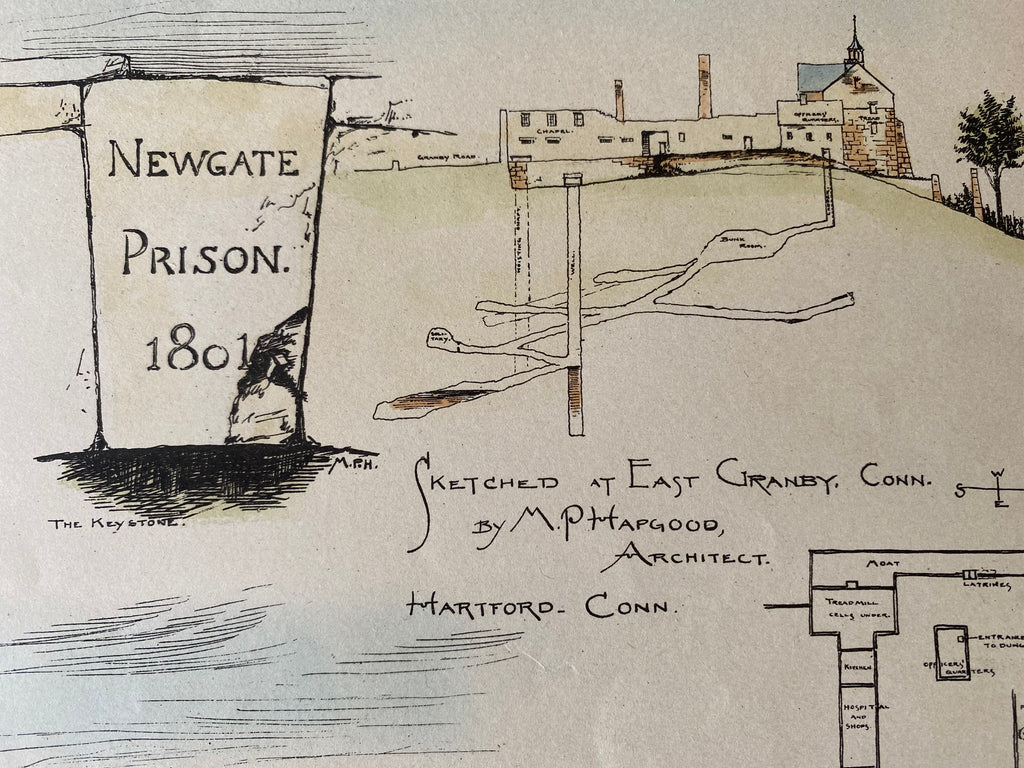 NEWGATE
PRISON.
1801
M.P.H.
THE KEYSTONE.
GRANBY ROAD
CHAPEL.
OFFICERS'
QUARTERS.
TREAD
HOISTING SHAFT
WELL.
BUNK
ROOM.
SOLI-
TARY.
SKETCHED AT EAST GRANBY, CONN.
BY M.P HAPGOOD,
ARCHITECT.
HARTFORD- CONN.
W
S
E
MOAT
LATRINES
TREADMILL
CELLS UNDER.
ENTRANCE
TO DUNG
OFFICERS'
QUARTERS
KITCHEN
HOSPITAL
AND
SHOPS.